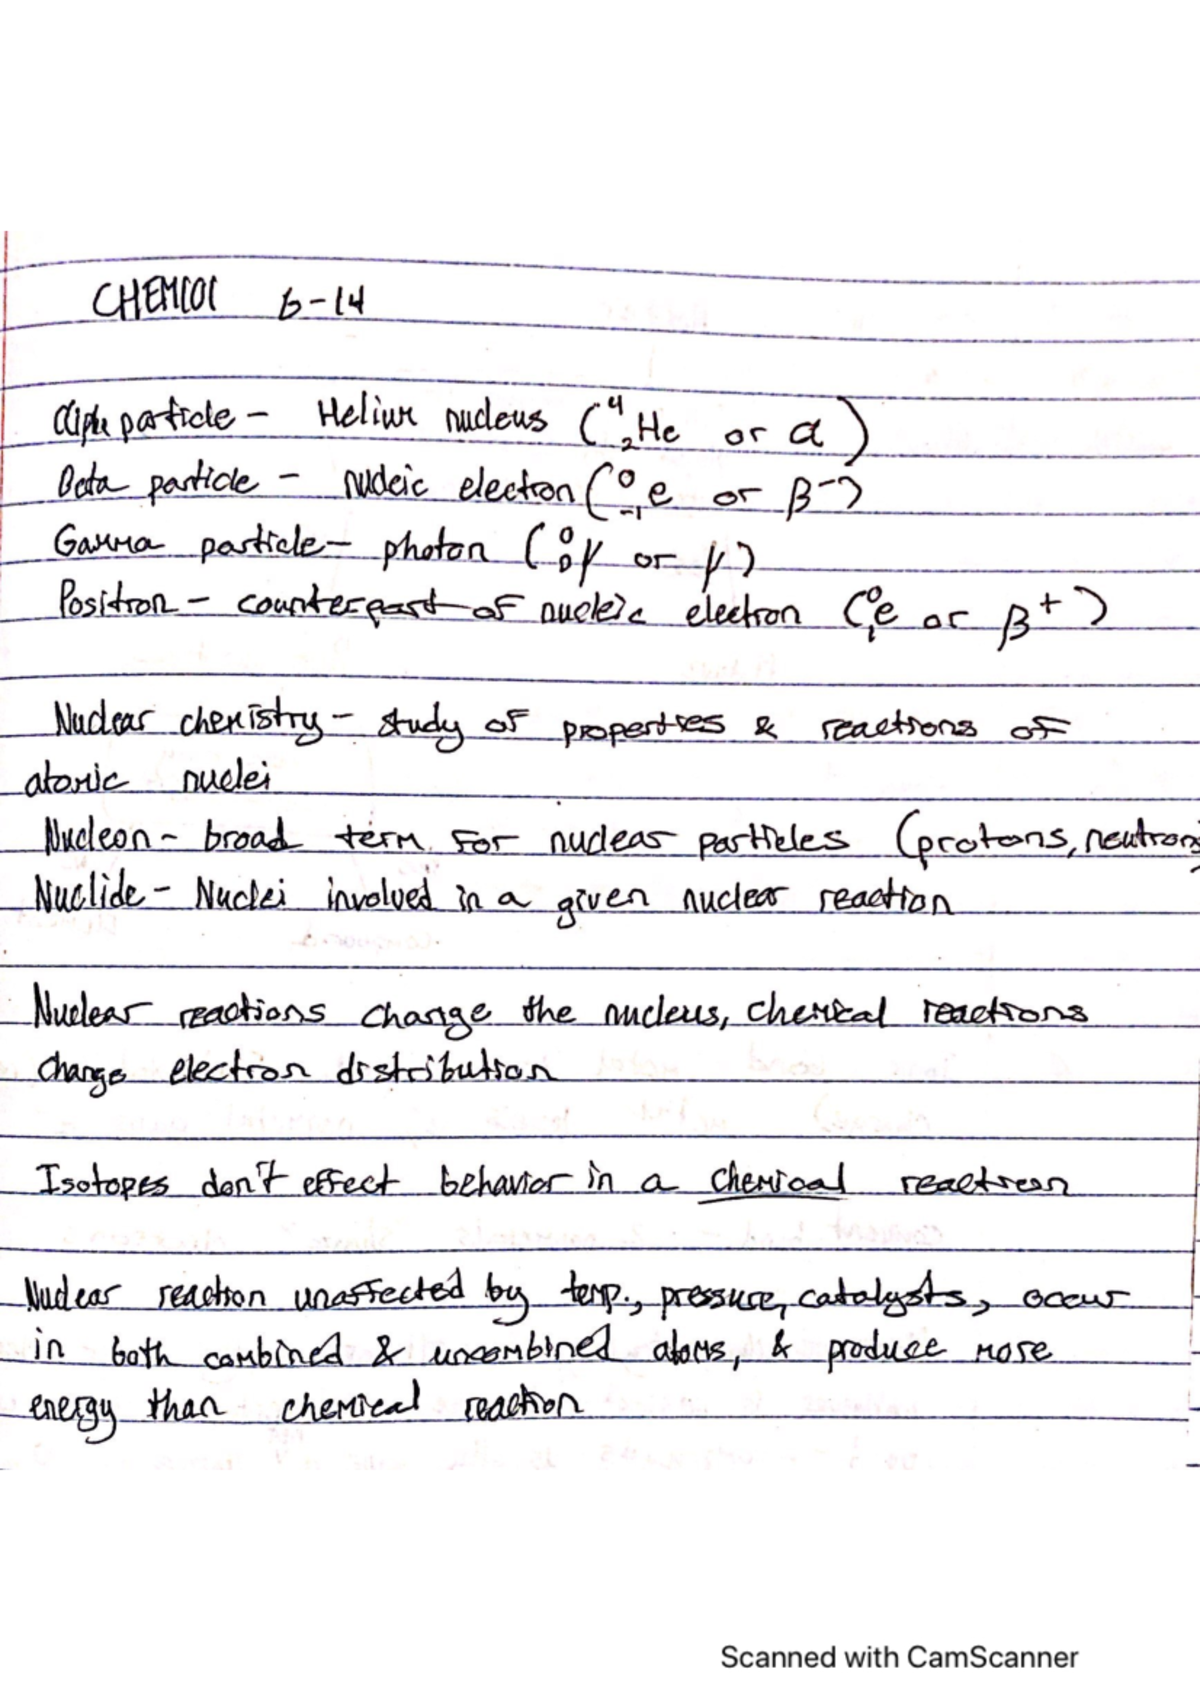 CHEM101 6-14
Alpha particle - Helium nucleus (⁴₂He or α)
Beta particle - nucleic electron (⁰₋₁e or β⁻)
Gamma particle - photon (⁰₀γ or γ)
Positron - counterpart of nucleic electron (⁰₁e or β⁺)
Nuclear chemistry - study of properties & reactions of
atomic nuclei
Nucleon - broad term for nuclear particles (protons, neutrons)
Nuclide - Nuclei involved in a given nuclear reaction
Nuclear reactions change the nucleus, chemical reactions
change electron distribution
Isotopes don't effect behavior in a chemical reaction
Nuclear reaction unaffected by temp., pressure, catalysts, occur
in both combined & uncombined atoms, & produce more
energy than chemical reaction
Scanned with CamScanner